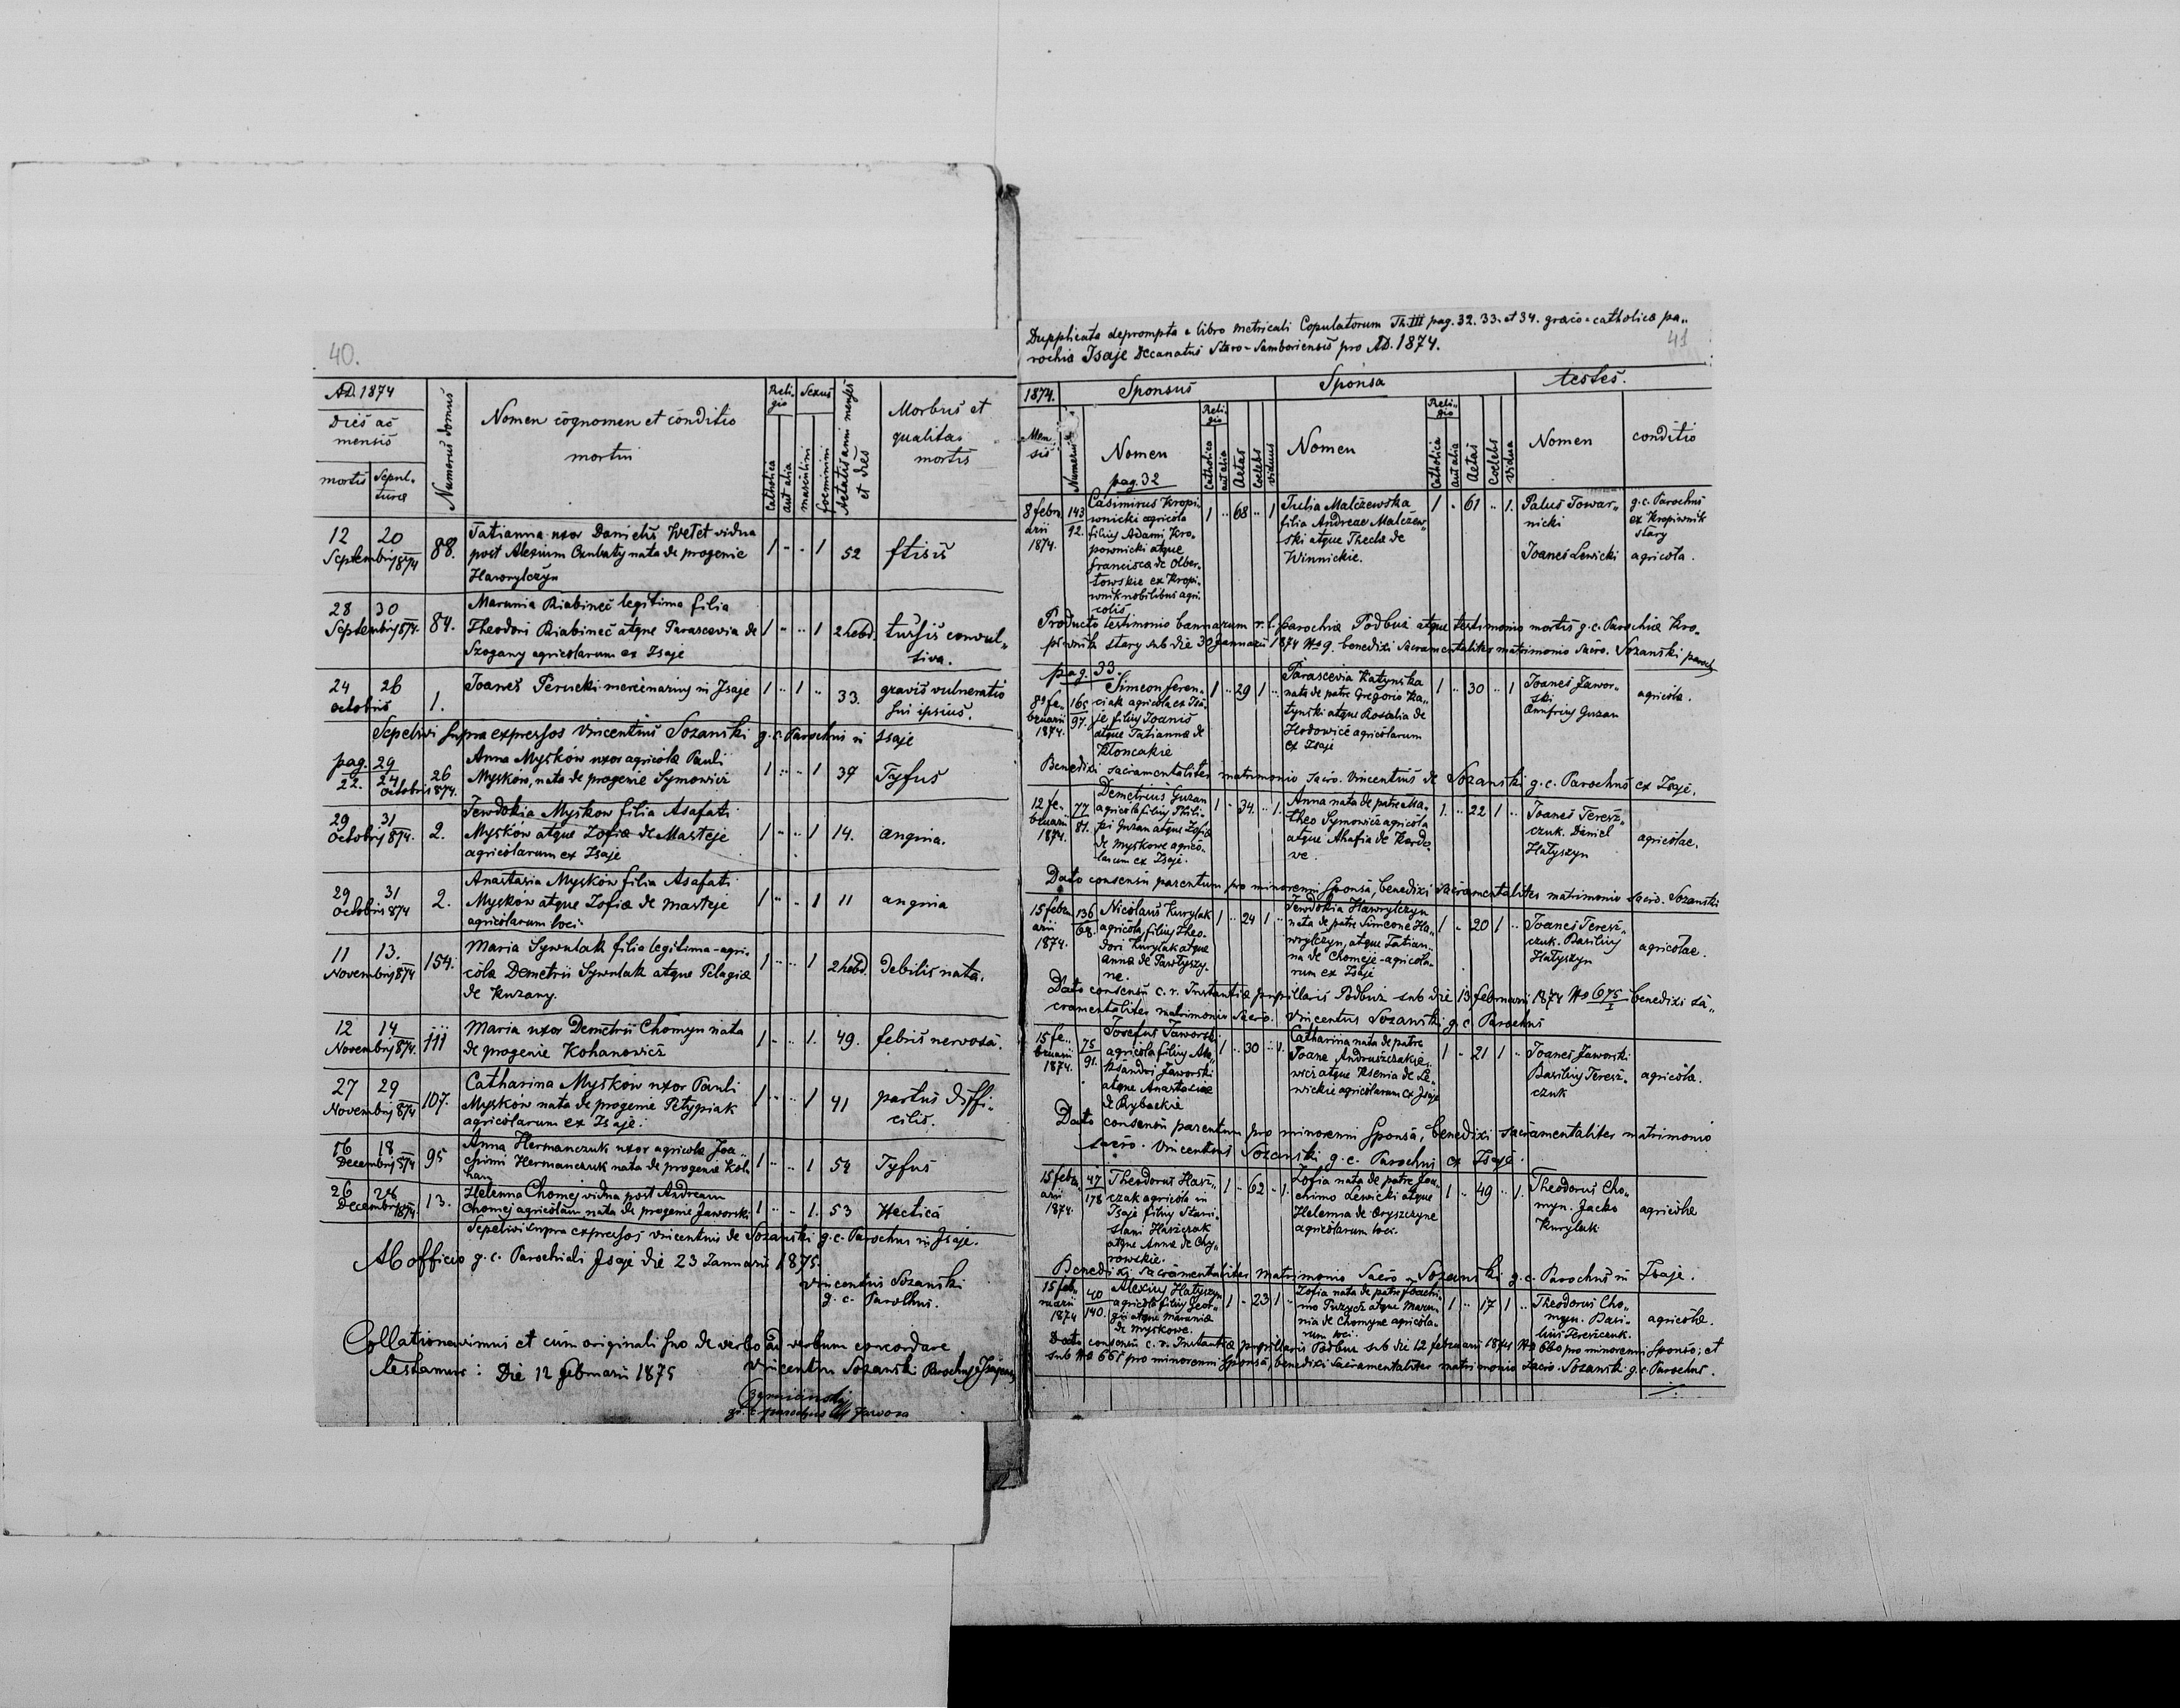 40.
A.D. 1874
Dies ac
mensis
mortis
Sepul-
turæ
Numerus domus
Nomen cognomen et conditio
mortui
Reli-
gio
Catholica
aut alia
Sexus
masculini
foeminini
Aetatis anni menses
et dies
Morbus et
qualitas
mortis
12 20
Septembris 874
88.
Tatianna uxor Danielis Wetet vidua
post Alexium nata de progenie
Hawrylczyn
1 .. .. 1 52 ftisis
28 30
Septembris 874.
84.
Marunia Riabinec legitima filia
Theodori Riabinec atque Parascevia de
Szogany agricolarum ex Isaje
1 .. .. 1 2 hebd. tussis convul-
siva.
24 26
octobris
1.
Joanes Perucki mercenarius in Isaje
1 .. 1 .. 33. gravis vulneratio
sui ipsius.
Sepelivi supra expressos Vincentius Sozanski g.c. Parochus in Isaje
pag. 29
22. 24
octobris 874.
26
Anna Myskow uxor agricolæ Pauli
Myskow, nata de progenie Symowicz
1 .. .. 1 37 Tyfus
29 31
Octobris 874.
2.
Jewdokia Myskow filia Asafati
Myskow atque Zofiæ de Masteje
agricolarum ex Isaje
1 .. .. 1 14. angina.
29 31
octobris 874
2.
Anastasia Myskow filia Asafati
Myskow atque Zofiæ de Masteje
agricolarum loci
1 .. .. 1 11 angina
11 13.
Novembris 874
154.
Maria Sywulak filia legitima agri-
colæ Demetrii Sywulak atque Pelagiæ
de Kuzany.
1 .. .. 1 2 hebd. debilis nata.
12 14
Novembris 874.
111
Maria uxor Demetrii Chomyn nata
de progenie Kohanowicz
1 .. .. 1. 49. febris nervosa.
27 29
Novembris 874
107.
Catharina Myskow uxor Pauli
Myskow nata de progenie Petypiak
agricolarum ex Isaje.
1 .. .. 1 41 partus diffi-
cilis.
16 18
Decembris 874
95
Anna Hermanczuk uxor agricolæ Joa-
chimi Hermanczuk nata de progenie Koh
han
1 .. .. 1 54 Tyfus
26 28
Decembris 874.
13.
Helenna Chomej vidua post Andream
Chomej agricolam nata de progenie Jaworski
1 .. .. 1. 53 Hectica
Sepelivi supra expressos Vincentius de Sozanski g.c. Parochus in Isaje.
Ab officio g.c. Parochiali Isaje die 23 Januarii 1875.
Vincentius Sozanski
g.c. Parochus.
Collationavimus et cum originali suo de verbo ad verbum concordare
testamur: Die 12 februarii 1875 Vincentius Sozanski Parochus
gr. c. parochus Jawora
Dupplicata deprompta e libro metricali Copulatorum Th. III pag. 32. 33. et 34. græco-catholicæ pa-
rochiæ Isaje Decanatus Staro-Samboriensis pro A.D. 1874.
41
1874. Sponsus Sponsa testes.
Men-
sis
Numerus
Nomen
pag. 32
Reli-
gio
Catholica
aut alia
Aetas
Coelebs
viduus
Nomen
Reli-
gio
Catholica
aut alia
Aetas
Coelebs
vidua
Nomen
conditio
8 febru-
arii
1874.
143
92.
Casimirus Kropi-
wnicki agricola
filius Adami Kro-
pownicki atque
francisca de Olber-
towskie ex Kropi-
wnik nobilibus agri-
colis
1 .. 68 .. 1
Julia Malczewska
filia Andreae Malczew-
ski atque Theclæ de
Winnickie.
1 .. 61 .. 1.
Palus Towar-
nicki
Joanes Lewicki
g.c. Parochus
ex Kropiwnik
Stary
agricola.
Producto testimonio bannorum r.l. parochiæ Podbuz atque testimonio mortis g.c. Parochiæ Kro-
piwnik stary sub die 30 Januarii 1874 No 9. benedixi sacramentaliter matrimonio sacro. Sozanski paroch
pag. 33.
8 fe-
bruarii
1874.
165
97.
Simeon Feren-
ciak agricola ex Isa-
je filius Joanis
atque Tatiannæ de
Kloncakie
1 .. 29 1 ..
Parascevia Katynska
nata de patre Gregorio Ka-
tynski atque Rosalia de
Hodowicé agricolarum
ex Isaje
1 .. 30 .. 1
Joanes Jawor-
ski
Onufrius Guzan
agricola.
Benedixi sacramentaliter matrimonio sacro. Vincentius de Sozanski g.c. Parochus ex Isaje.
12 fe-
bruarii
1874.
77
81.
Demetrius Guzan
agricola filius Phili-
pi Guzan atque Zofiæ
de Myskowe agrico-
larum ex Isaje.
1 .. 34. .. 1.
Anna nata de patre Ma-
theo Symowicz agricola
atque Ahafia de Kordo-
we.
1. .. 22 1 ..
Joanes Teresz-
czuk. Daniel
Hatyszyn
agricolae.
Dato consensu parentum pro minorenni sponsa, benedixi sacramentaliter matrimonio sacro. Sozanski
15 febru-
arii
1874.
136
68.
Nicolaus Kurylak
agricola, filius Theo-
dori Kurylak atque
Anna de Pawlyszy-
ne.
1 .. 24 1 ..
Jewdokia Hawrylczyn
nata de patre Simeone Ha-
wrylczyn, atque Tatian-
na de Chomeje agricola-
rum ex Isaje
1 .. 20 1 ..
Joanes Teresz-
czuk. Basilius
Hatyszyn
agricolae.
Dato consensu c.r. Instantiæ pupillaris Podbuz sub die 13 februarii 1874 No 675/I benedixi sa-
cramentaliter matrimonio sacro. Vincentius Sozanski g.c. Parochus
15 fe-
bruarii
1874.
75
91.
Josefus Jaworski
agricola filius Ale-
ksandri Jaworski
atque Anastasiæ
de Rybackie
1 .. 30 .. 1.
Catharina nata de patre
Joane Andruszczakie-
wicz atque Ksenia de Le-
wickie agricolarum ex Isaje
1 .. 21 1 ..
Joanes Jaworski
Basilius Teresz-
czuk
agricola.
Dato consensu parentum pro minorenni sponsa, benedixi sacramentaliter matrimonio
sacro. Vincentius Sozanski g.c. Parochus ex Isaje.
15 febru-
arii
1874.
47
178
Theodorus Harz-
czak agricola in
Isaje filius Stani-
slani Harzczak
atque Annæ de Chy-
rowskie.
1 .. 62 .. 1.
Zofia nata de patre Joa-
chimo Lewicki atque
Helenna de Oryszczyne
agricolarum loci.
1 .. 49 .. 1.
Theodorus Cho-
myn. Jacko
Kurylak
agricolæ
Benedixi sacramentaliter matrimonio sacro Sozanski g.c. Parochus in Isaje.
15 feb-
ruarii
1874
40
140.
Alexius Hatyszyn
agricola filius Geor-
gii atque Maruniæ
de Myskowe.
1 .. 23 1 ..
Zofia nata de patre Joachi-
mo Puzycz atque Maru-
nia de Chomyne agricola-
rum loci.
1 .. 17 1 ..
Theodorus Cho-
myn. Basi-
lius Tereszczuk.
agricolæ.
Dato consensu c.r. Instantiæ pupillaris Podbuz sub die 12 februarii 1874 No 660 pro minorenni sponso; et
sub No 665 pro minorenni sponsa, benedixi sacramentaliter matrimonio sacro. Sozanski g.c. Parochus.